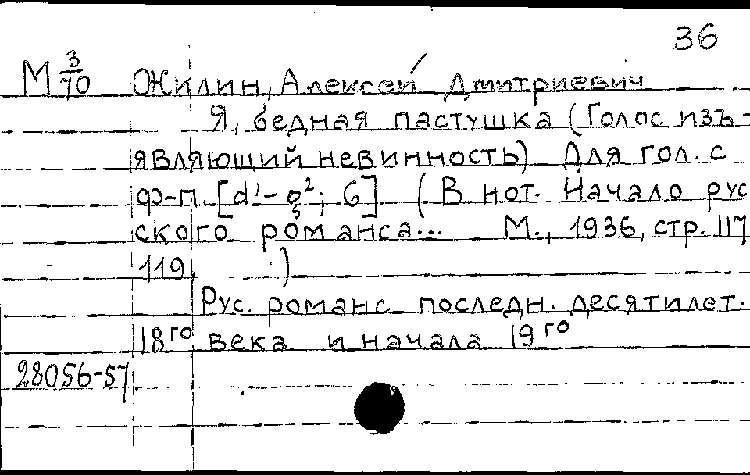 36
М 3/70 Жилин, Алексей Дмитриевич
Я, бедная пастушка (Голос изъ-
являющий невинность) Для гол. с
ф-п. [d¹-g²; G] (В нот. Начало рус
ского романса... М., 1936, стр. 117
119. )
Рус. романс последн. десятилет.
18го века и начала 19го
28056-57